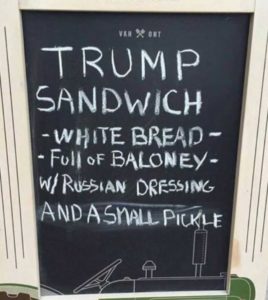 VAN ORT
TRUMP
SANDWICH
-WHITE BREAD-
-FUll OF BALONEY-
W/RUSSIAN DRESSING
AND A SMALL PICKLE